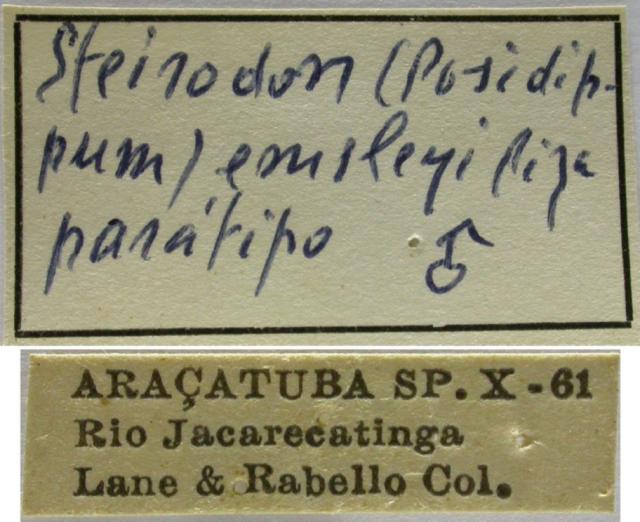 Steirodon (Posidip-
pum) emsleyi Piza
parátipo ♂
ARAÇATUBA SP. X - 61
Rio Jacarecatinga
Lane & Rabello Col.